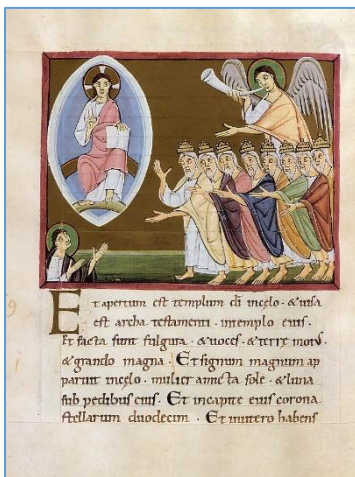 Et apertum est templum di incelo · & uisa
est archa testamenti · intemplo eius ·
Et facta sunt fulgura · & uoces · & terre motus ·
& grando magna · Et signum magnum ap
paruit incelo · mulier amicta sole · & luna
sub pedibus eius · Et incapite eius corona
stellarum duodecim · Et inutero habens